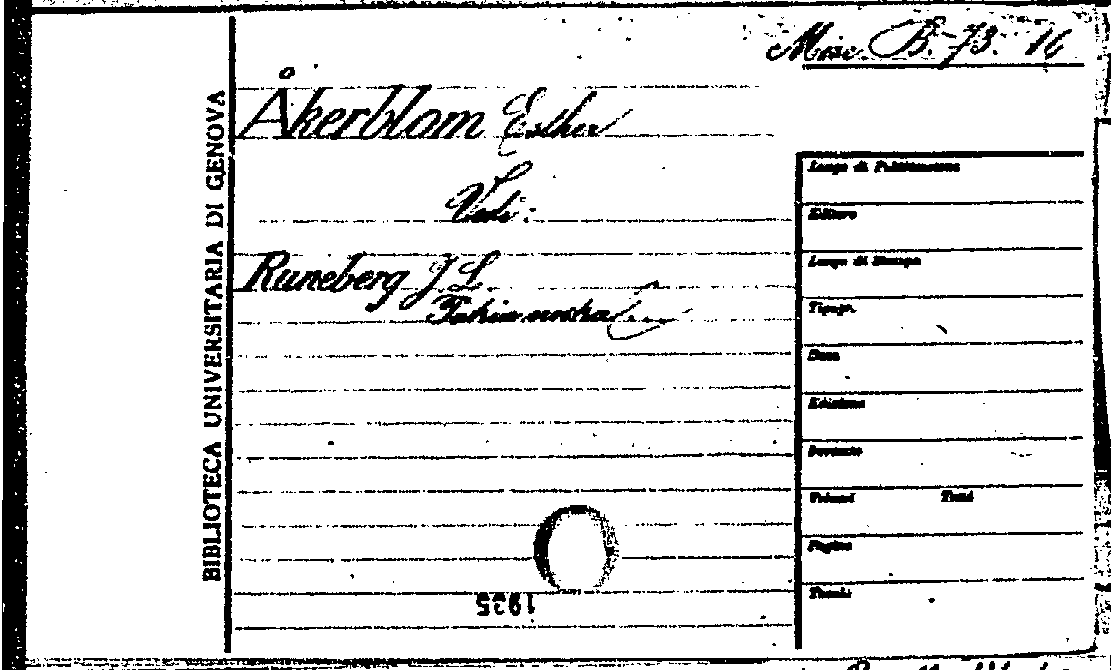 Misc. B. 73. 16
Åkerblom Esther
Vedi:
Runeberg J. L.
BIBLIOTECA UNIVERSITARIA DI GENOVA
Luogo di Pubblicazione
Editore
Luogo di Stampa
Tipogr.
Data
Edizione
Formato
Volumi Tomi
Pagine
Tavole
1935